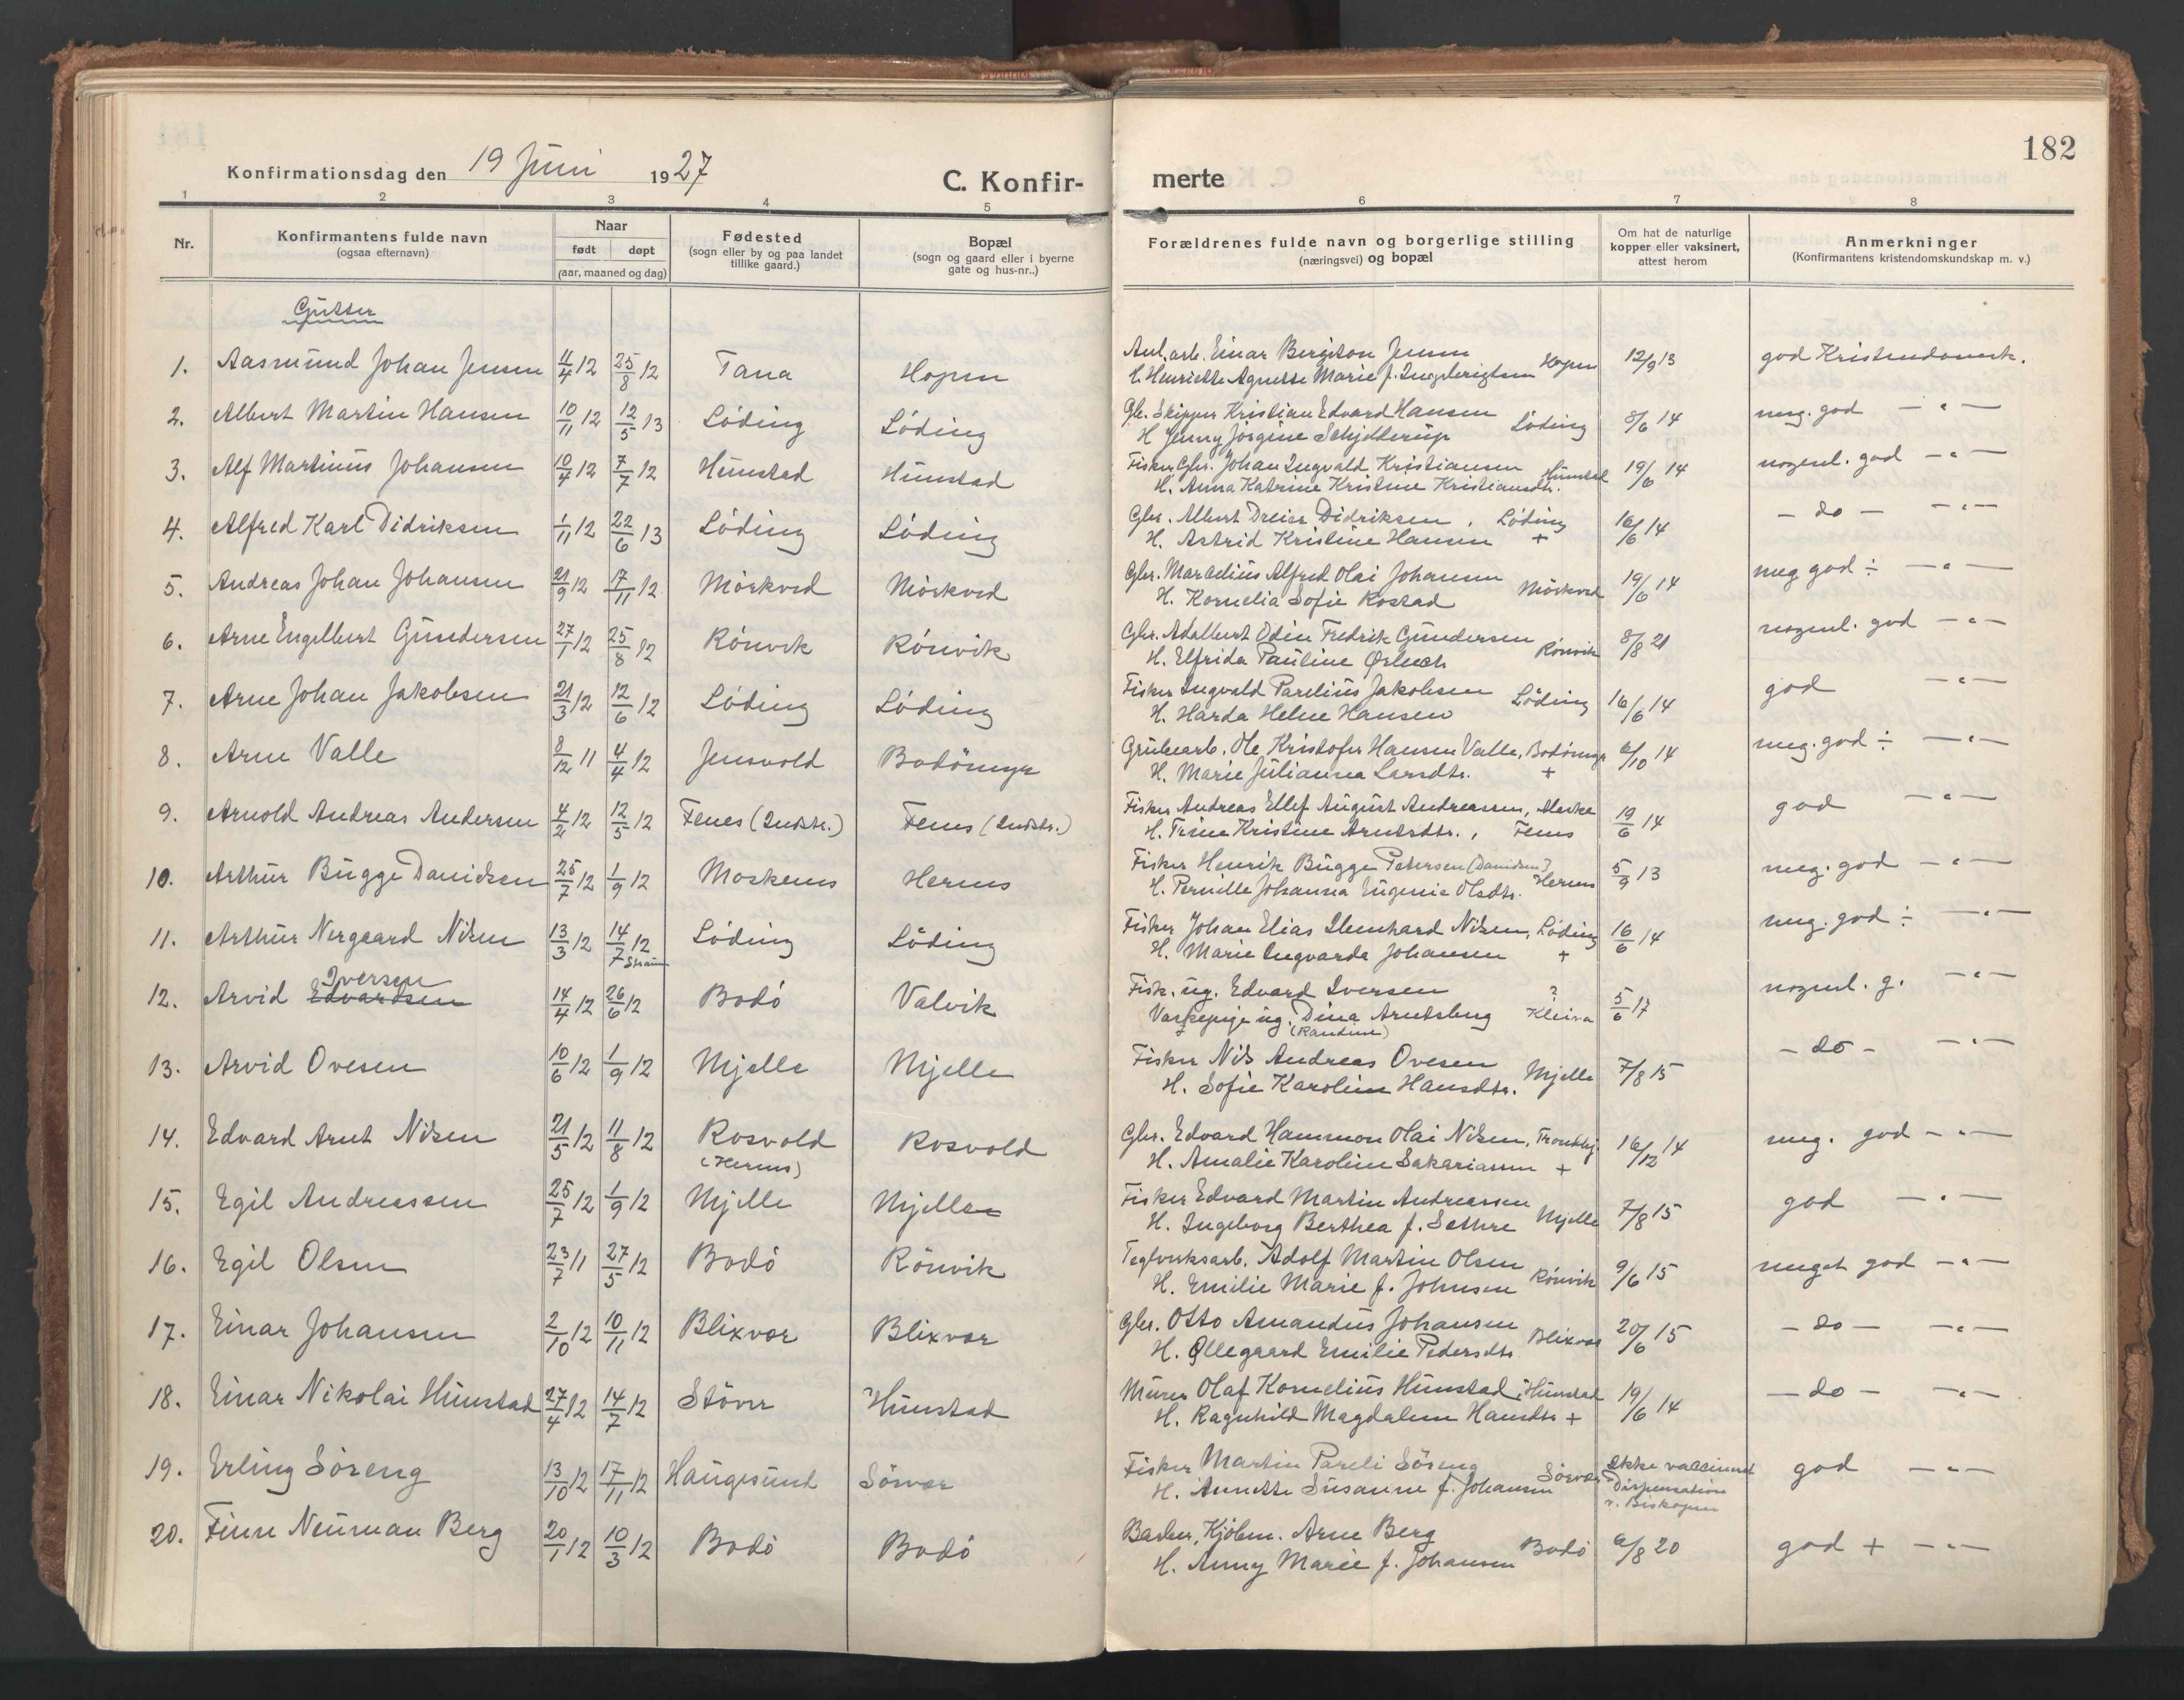 182
Konfirmationsdag den 19 Juni 1927
C. Konfirmerte
1 2 3 4 5 6 7 8
Nr.
Konfirmantens fulde navn
(ogsaa efternavn)
Naar
født døpt
(aar, maaned og dag)
Fødested
(sogn eller by og paa landet
tillike gaard.)
Bopæl
(sogn og gaard eller i byerne
gate og hus-nr..)
Forældrenes fulde navn og borgerlige stilling
(næringsvei) og bopæl
Om hat de naturlige
kopper eller vaksinert,
attest herom
Anmerkninger
(Konfirmantens kristendomskundskap m. v.)
Gutter
1. Aasmund Johan Jensen 11/4 12 25/8 12 Tana Hopen Anl.arb. Einar Bergiton Jensen Hopen 12/9 13 god Kristendomsk.
H. Henriette Agnette Marie f. Ingebrigtsen
2. Albert Martin Hansen 10/11 12 12/5 13 Löding Löding Gbr. Skipper Kristian Edvard Hansen Löding 8/6 14 meg. god — " —
H. Jenny Jörgine Schjelderup
3. Alf Martinus Johansen 10/4 12 7/7 12 Hunstad Hunstad Fisker Gbr. Johan Ingvald Kristiansen Hunstad 19/6 14 nogenl. god — " —
H. Anna Katrine Kristine Kristiansdtr.
4. Alfred Karl Didriksen 1/11 12 22/6 13 Löding Löding Gbr. Albert Dreier Didriksen, Löding 16/6 14 – do – — " —
H. Astrid Kristine Hansen +
5. Andreas Johan Johansen 21/9 12 17/11 12 Mörkved Mörkved Gbr. Marcelius Alfred Olai Johansen Mörkved 19/6 14 meg god ÷ — " —
H. Kornelia Sofie Rostad
6. Arne Engelbert Gundersen 27/1 12 25/8 12 Rönvik Rönvik Gbr. Adalbert Odin Fredrik Gundersen Rönvik 8/8 21 nogenl. god — " —
H. Elfrida Pauline
7. Arne Johan Jakobsen 21/3 12 12/6 12 Löding Löding Fisker Ingvald Parelius Jakobsen Löding 16/6 14 god — " —
H. Harda Helene Hansen
8. Arne Valle 8/12 11 4/4 12 Jensvold Bodömyr Grubearb. Ole Kristofer Hansen Valle, Bodömyr 6/10 14 meg. god ÷ — " —
H. Marie Julianna Larsdtr. +
9. Arnold Andreas Andersen 4/2 12 12/5 12 Fenes (Indstr.) Fenes (Indstr.) Fisker Andreas Ellef August Andreassen, 19/6 14 god — " —
H. Trine Kristine Arntsdtr., Fenes
10. Arthur Bugge Danielsen 25/7 12 1/9 12 Moskenes Hernes Fisker Henrik Bugge Petersen (Danielsen) Hernes 5/9 13 meg. god — " —
H. Pernille Johanna Eugenie Olsdtr.
11. Arthur Nergaard Nilsen 13/3 12 14/7 12 Löding Löding Fisker Johan Elias Nilsen, Löding 16/6 14 meg. god ÷ — " —
H. Marie Ingvarda Johansen +
12. Arvid Edvardsen Iversen 14/4 12 26/6 12 Bodö Valvik Fisk. ug. Edvard Iversen ? 5/6 17 nogenl. g. — " —
Vaskepige ug. Dina Arntsberg Kleiva
(Randine)
13. Arvid Ovesen 10/6 12 1/9 12 Mjelle Mjelle Fisker Nils Andreas Ovesen Mjelle 7/8 15 – do – — " —
H. Sofie Karoline Hansdtr.
14. Edvard Arnt Nilsen 21/5 12 11/8 12 Rosvold (Hernes) Rosvold Gbr. Edvard Hammon Olai Nilsen, Trondhj. 16/12 14 meg. god — " —
H. Amalie Karoline Sakariassen +
15. Egil Andreassen 25/7 12 1/9 12 Mjelle Mjelle Fisker Edvard Martin Andreassen Mjelle 7/8 15 god — " —
H. Ingeborg Berthea f. Sethre
16. Egil Olsen 23/7 11 27/5 12 Bodö Rönvik Teglverksarb. Adolf Martin Olsen Rönvik 9/6 15 meget god — " —
H. Emilie Marie f. Johnsen
17. Einar Johansen 2/10 12 10/11 12 Blixvær Blixvær Gbr. Otto Amandus Johansen Blixvær 20/6 15 – do – — " —
H. Øllegaard Emilie Pedersdtr.
18. Einar Nikolai Hunstad 27/4 12 14/7 12 Stöver Hunstad Murer Olaf Kornelius Hunstad, Hunstad 19/6 14 – do – — " —
H. Ragnhild Magdalene Hansdtr. +
19. Erling Söreng 13/10 12 17/11 12 Haugesund Sörvær Fisker Martin Pareli Söreng Sörvær Ikke vaccineret god — " —
H. Annette Susanne f. Johansen Dispensation
v. Biskopen
20. Finn Neuman Berg 20/1 12 10/3 12 Bodö Bodö Barber, Kjöbm. Arne Berg Bodö 6/8 20 god + — " —
H. Anny Marie f. Johansen